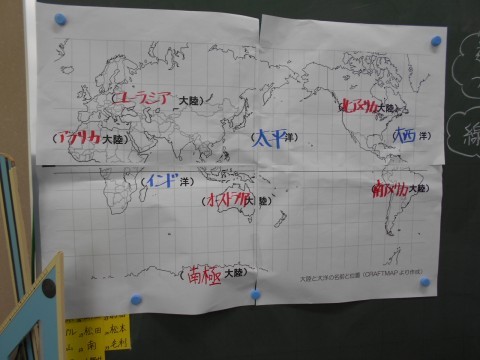 (ユーラシア 大陸)
(北アメリカ大陸)
(アフリカ 大陸)
(太平洋)
(大西 洋)
(インド 洋)
(オーストラリア大陸)
(南アメリカ大陸)
(南極 大陸)
大陸と大洋の名前と位置(CRAFTMAPより作成)
松田
松本
南
毛利